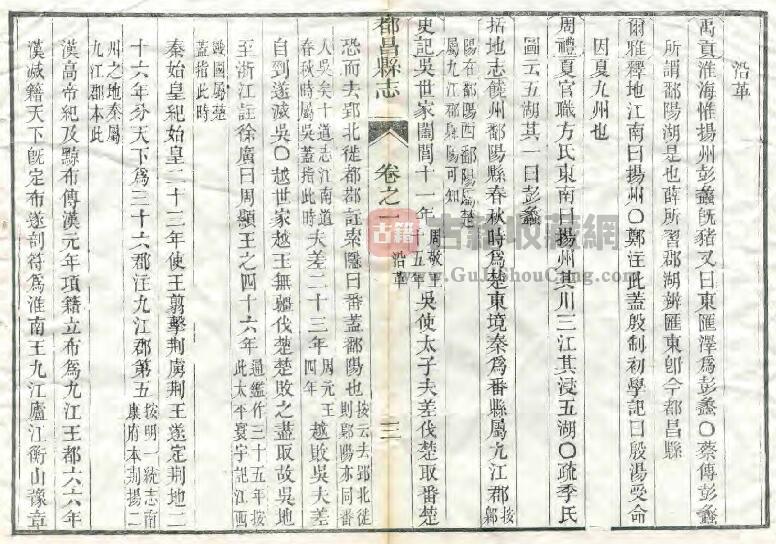 沿革
禹貢淮海惟揚州彭蠡旣豬又曰東匯澤爲彭蠡〇蔡傳彭蠡
所謂鄱陽湖是也薛所習郡湖辨匯東卽今都昌縣
爾雅釋地江南曰揚州〇鄭注此蓋殷制初學記曰殷湯受命
因夏九州也
周禮夏官職方氏東南曰揚州其川三江其浸五湖〇疏季氏
圖云五湖其一曰彭蠡
括地志饒州鄱陽縣春秋時爲楚東境秦爲番縣屬九江郡按鄡
陽在鄱陽西鄱陽屬楚
屬九江郡鄡陽可知
史記吳世家闔閭十一年周敬王
十五年吳使太子夫差伐楚取番楚
都昌縣志
卷之一
沿革
三
恐而去郢北徙都鄀註索隱曰番蓋鄱陽也按云去郢北徙
則鄡陽亦同番
入吳矣十道志江南道
春秋時屬吳蓋指此時夫差二十三年周元王
四年越敗吳夫差
自剄遂滅吳〇越世家越王無彊伐楚楚敗之盡取故吳地
至浙江註徐廣曰周顯王之四十六年通鑑作三十五年按
此太平寰宇記江西
蓋指此時
秦始皇紀始皇二十三年使王翦擊荆虜荆王遂定荆地二
十六年分天下爲三十六郡注九江郡第五按明一統志南
康府本荆揚二
州之地秦屬
九江郡本此
漢高帝紀及黥布傳漢元年項籍立布爲九江王都六六年
漢滅籍天下旣定布遂剖符爲淮南王九江廬江衡山豫章
古籍收藏網
www.GuJiShouCang.com
古籍